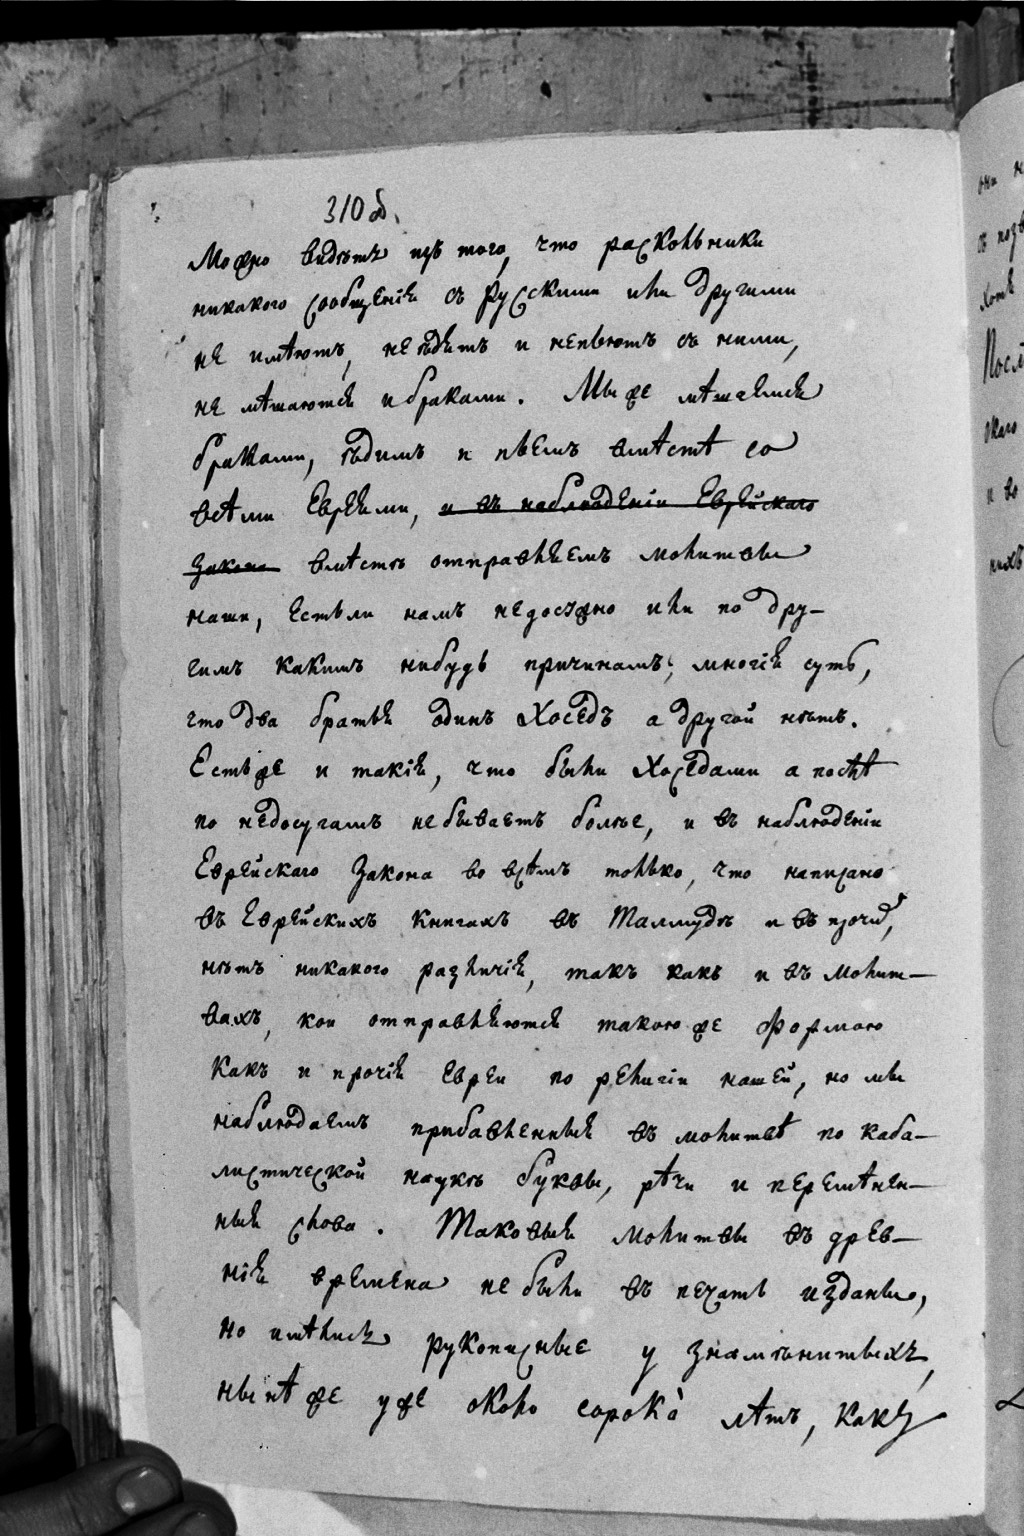 310 б.
Можно видѣть изъ того, что раскольники
никакого сообщенія съ Русскими или другими
не имѣютъ, неѣдятъ и непьютъ съ ними,
не мѣшаются и браками. Мы же мѣшаемся
браками, ѣдимъ и пьемъ вмѣстѣ со
всѣми Евреями, и въ наблюденіи Еврейскаго
Закона вмѣстѣ отправляемъ молитвы
наши, естьли намъ недосужно или по дру–
гимъ какимъ нибудь причинамъ; многія суть,
что два братья одинъ Хоседъ а другой нѣтъ.
Естьже и такія, что были Хоседами а послѣ
по недосугамъ небываетъ болѣе, и въ наблюденіи
Еврейскаго Закона во всѣмъ только, что написано
въ Еврейскихъ книгахъ въ Талмудѣ и въ проч.,
нѣтъ никакого различія, такъ какъ и въ молит–
вахъ, кои отправляются такою же формою
какъ и прочія Евреи по религіи нашей, но мы
наблюдаемъ прибавленныя въ молитвѣ по каба–
листической наукѣ буквы, рѣчи и перемѣнен–
ныя слова. Таковыя молитвы въ древ–
нія времена не были въ печать изданы,
но имѣлись рукописные у знамѣнитыхъ,
нынѣ же уже около сорока лѣтъ, какъ
они н
Посл
и во
нихъ